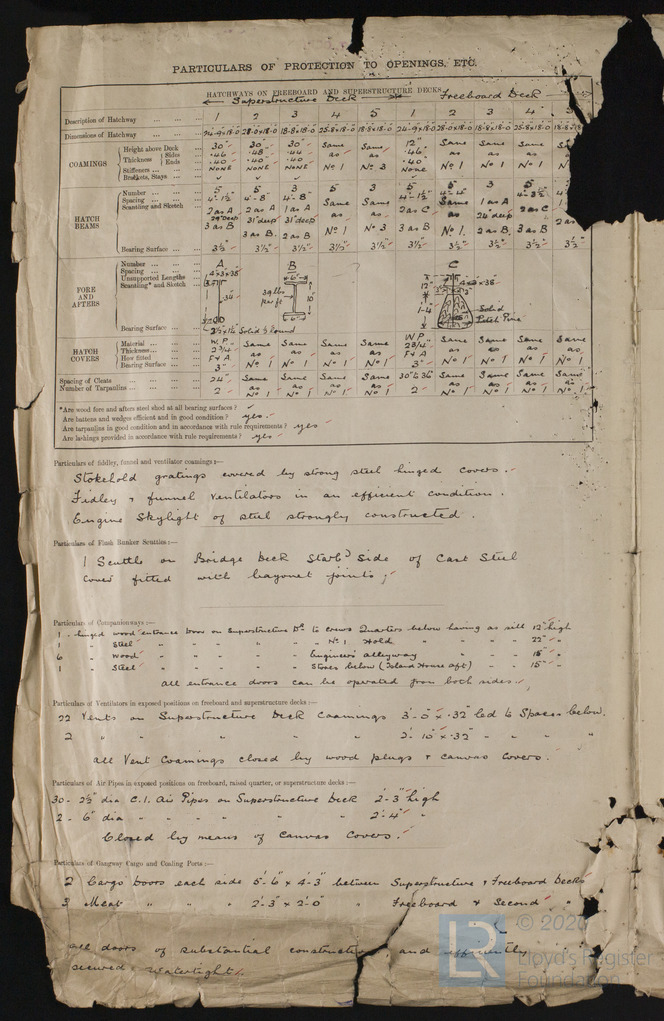 PARTICULARS OF PROTECTION TO OPENINGS, ETC.
HATCHWAYS ON FREEBOARD AND SUPERSTRUCTURE DECKS
Superstructure Deck Freeboard Deck
Description of Hatchway 1 2 3 4 5 1 2 3 4 5
Dimensions of Hatchway 24-9x18-0 28-0x18-0 18-8x18-0 25-8x18-0 18-8x18-0 24-9x18-0 28-0x18-0 18-8x18-0 25-8x18-0 18-8x18
COAMINGS
Height above Deck 30" 30" 30" Same Same 12" Same Same Same Same
Thickness Sides .46 .48 .44 as as .46 as as as
Ends .40 .40 .40 .40
Stiffeners NONE NONE NONE No 1 No 3 None No 1 No 1 No 1
Brackets, Stays
HATCH BEAMS
Number 5 5 3 5 3 5 5 3 5
Spacing 4-1½ 4-8" 4-8"
Scantling and Sketch 2 as A 2 as A 1 as A Same Same 2 as C Same 1 as A 2 as C
29" deep 31" deep 31" deep as as as 24" deep
3 as B 3 as B 2 as B No 1 No 3 3 as B No 1 2 as B 3 as B
Bearing Surface 3½" 3½" 3½" 3½" 3½" 3½" 3½" 3½" 3½" 3½"
FORE AND AFTERS
Number A B C
Spacing
Unsupported Lengths
Scantling* and Sketch
Solid
Pitch Pine
Bearing Surface
HATCH COVERS
Material W.P. Same Same Same Same W P Same Same Same Same
Thickness 2¾" as as as as 2¾" as as as as
How fitted F & A F & A
Bearing Surface 3" No 1 No 1 No 1 No 1 3" No 1 No 1 No 1 No 1
Spacing of Cleats 24" Same Same Same Same 30" to 36" Same Same Same Same
Number of Tarpaulins 2 as No 1 as No 1 as No 1 as No 1 2 as No 1 as No 1 as No 1 as No 1
*Are wood fore and afters steel shod at all bearing surfaces?
Are battens and wedges efficient and in good condition? yes
Are tarpaulins in good condition and in accordance with rule requirements? yes
Are lashings provided in accordance with rule requirements? yes
Particulars of fiddley, funnel and ventilator coamings:—
Stokehold gratings covered by strong steel hinged covers.
Fidley & funnel ventilators in an efficient condition.
Engine Skylight of steel strongly constructed.
Particulars of Flush Bunker Scuttles:—
1 Scuttle on Bridge Deck Starbd side of Cast Steel
cover fitted with bayonet joints;
Particulars of Companionways:—
1 - hinged wood entrance Door on Superstructure Dk to crews Quarters below having as sill 12" high
1 " Steel " " " " " No 1 Hold " " " 22" "
6 " Wood " " " " " Engineers alleyway " " " 15" "
1 " Steel " " " " " Stores below (Island House aft) " " 15" "
all entrance doors can be operated from both sides.
Particulars of Ventilators in exposed positions on freeboard and superstructure decks:—
22 Vents on Superstructure Deck Coamings 3'-0" x .32" led to Spaces below.
2 " " " " 2'-10" x .32" " " "
all Vent Coamings closed by wood plugs & canvas Covers.
Particulars of Air Pipes in exposed positions on freeboard, raised quarter, or superstructure decks:—
30 - 2½" dia C.I. Air Pipes on Superstructure Deck 2'-3" high
2 - 6" dia " " " " " 2'-4" "
Closed by means of Canvas Covers.
Particulars of Gangway Cargo and Coaling Ports:—
2 Cargo Doors each side 5'-6" x 4'-3" between Superstructure & Freeboard Decks
3 Meat " " " 2'-3" x 2'-0" " Freeboard & Second "
all doors of substantial construction and efficiently
secured watertight.
LR
Lloyd's Register
Foundation